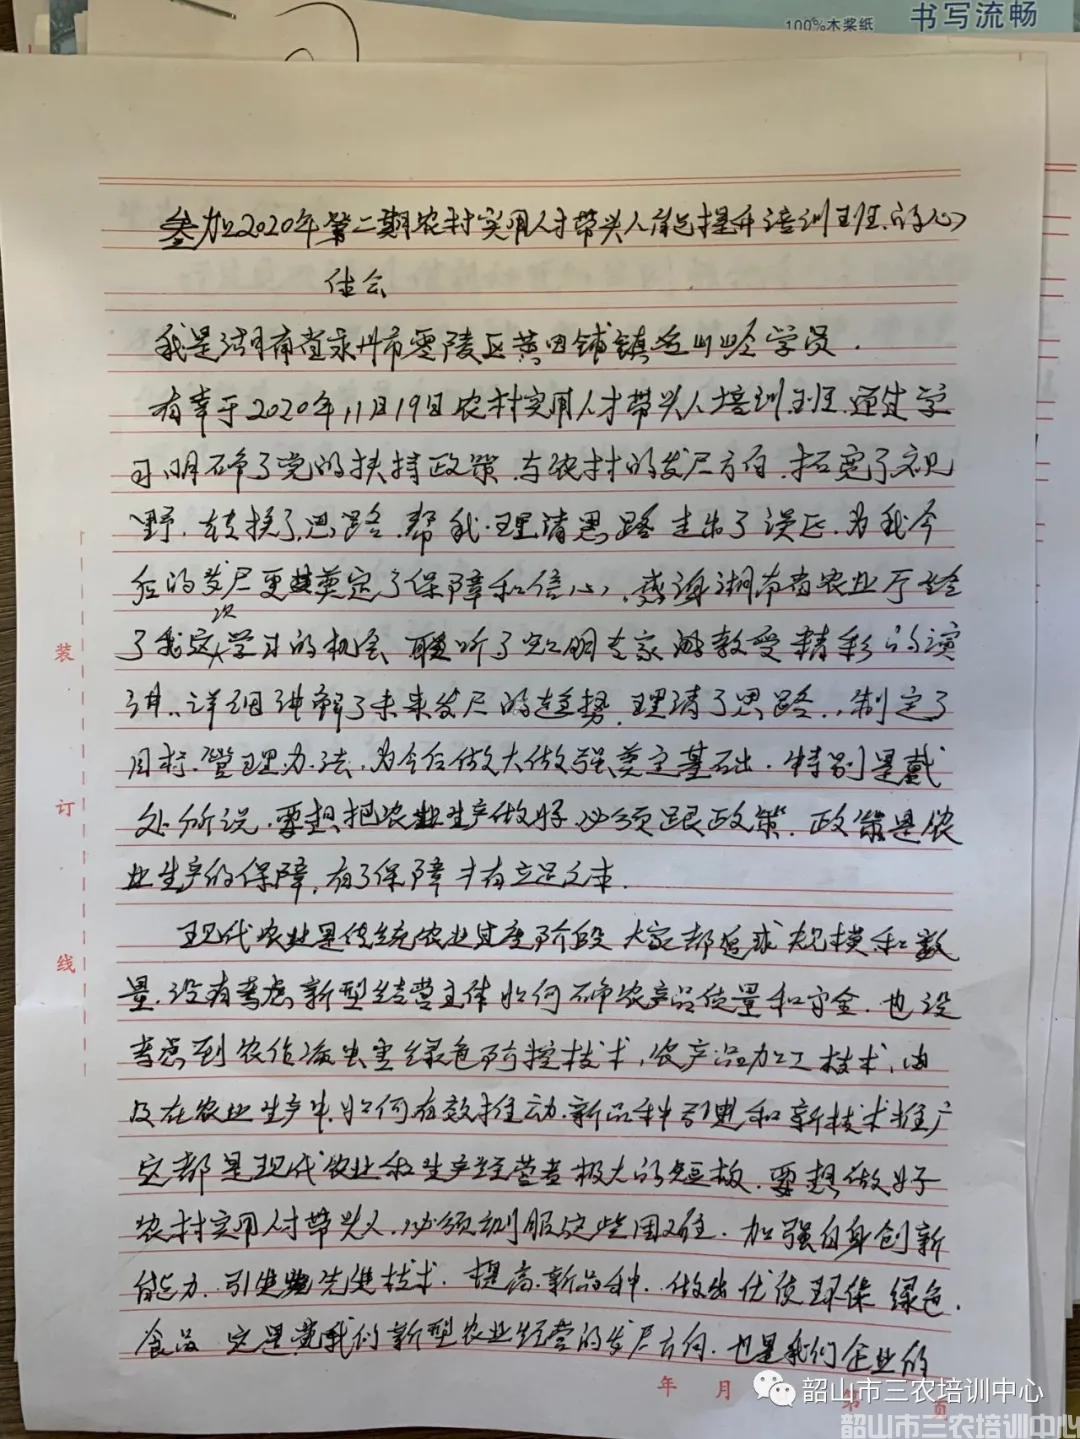 书写流畅
100%木浆纸
参加2020年第二期农村实用人才带头人能力提升培训班的心
体会
我是湖南省永州市零陵区黄田铺镇 学员.
有幸于2020年11月19日农村实用人才带头人培训班.通过学
习明确了党的扶持政策.与农村的发展方向.拓宽了视
野.转换了思路.帮我理清思路走出了误区.为我今
后的发展更奠定了保障和信心.感谢湖南省农业厅给
了我这次学习的机会 聆听了 专家 教授精彩的演
讲.详细讲解了未来发展的趋势.理清了思路.制定了
目标.管理办法.为今后做大做强奠定基础.特别是戴
处所说.要想把农业生产做好.必须跟政策.政策是农
业生产的保障,有了保障才有立足之本.
现代农业是传统农业过度阶段 大家都追求规模和数
量.没有考虑新型经营主体如何确农产品质量和安全.也没
考虑到农作病虫害绿色防控技术,农产品加工技术,以
及在农业生产中.如何有效推动.新品种引进和新技术推广
这都是现代农业和生产经营者极大的短板.要想做好
农村实用人才带头人.必须克服这些困难.加强自身创新
能力.引进先进技术.提高.新品种.做出优质环保 绿色.
食品 这是我们新型农业经营的发展方向.也是我们企业的
装
订
线
年 月
第 页
韶山市三农培训中心
韶山市三农培训中心